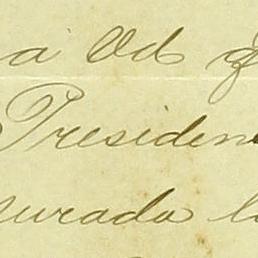 a Vd
Presiden
urada